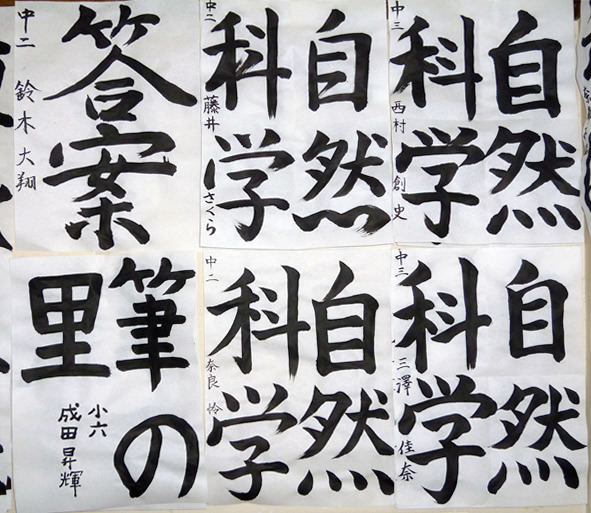 自然
科学
中三 西村 創史
自然
科学
中二 藤井 さくら
答案
中二 鈴木 大翔
自然
科学
中三 三澤 佳奈
自然
科学
中二 奈良 怜
筆の
里
小六
成田昇輝